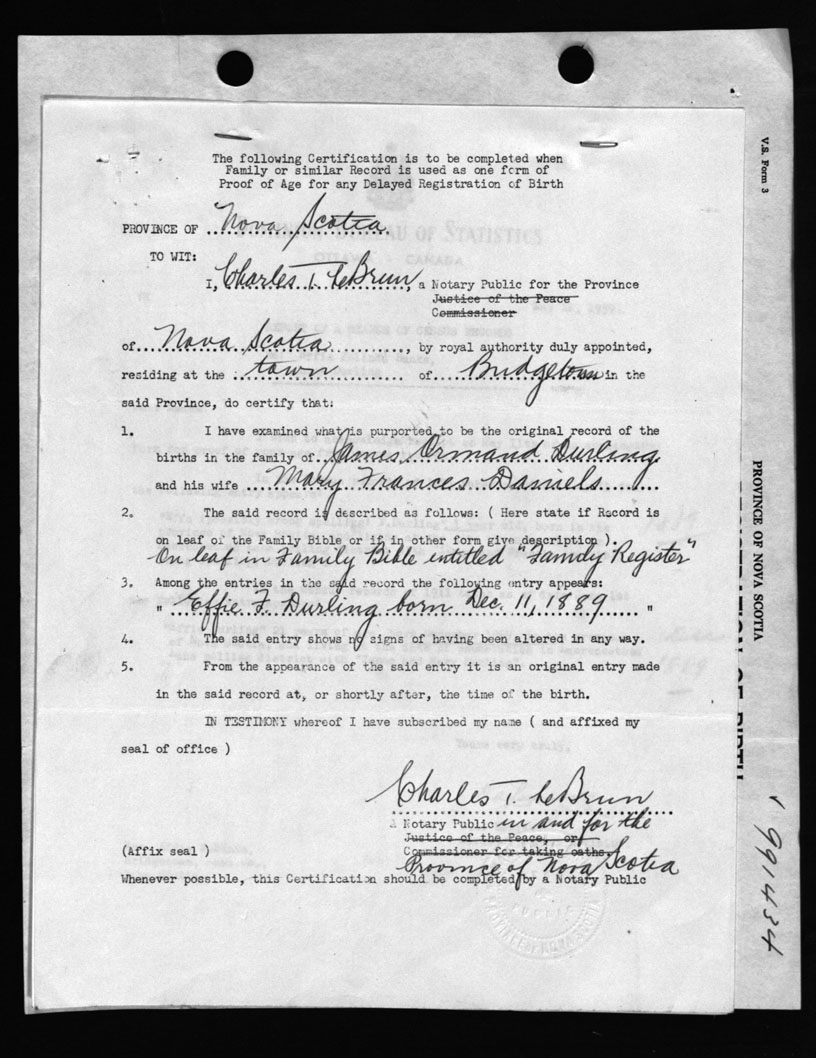 The following Certification is to be completed when
Family or similar Record is used as one form of
Proof of Age for any Delayed Registration of Birth
PROVINCE OF Nova Scotia
BUREAU OF STATISTICS
OTTAWA - CANADA
TO WIT:
I, Charles T. LeBrun, a Notary Public for the Province
Justice of the Peace
Commissioner
of Nova Scotia, by royal authority duly appointed,
residing at the town of Bridgetown in the
said Province, do certify that:
1. I have examined what is purported to be the original record of the
births in the family of James Ormand Durling
and his wife Mary Frances Daniels
2. The said record is described as follows: ( Here state if Record is
on leaf of the Family Bible or if in other form give description ).
On leaf in Family Bible entitled "Family Register"
3. Among the entries in the said record the following entry appears:
" Effie F. Durling born Dec. 11, 1889 "
4. The said entry shows no signs of having been altered in any way.
5. From the appearance of the said entry it is an original entry made
in the said record at, or shortly after, the time of the birth.
IN TESTIMONY whereof I have subscribed my name ( and affixed my
seal of office )
Yours very truly,
Charles T. LeBrun
A Notary Public in and for the
Justice of the Peace, or
(Affix seal ) Commissioner for taking oaths.
Province of Nova Scotia
Whenever possible, this Certification should be completed by a Notary Public
V.S. Form 3
PROVINCE OF NOVA SCOTIA
OF BIRTH
991434